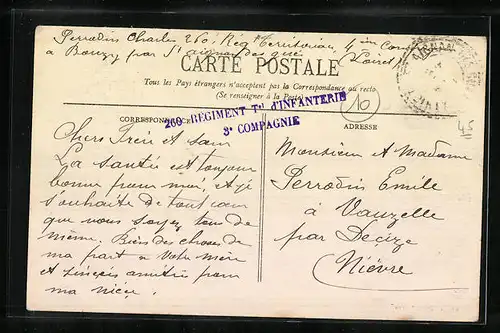 Perrodin Charles 260e Rég Territorial, 4ième Comp
à Bouzy par St aignan des gué Loiret
CARTE POSTALE
Tous les Pays étrangers n'acceptent pas la Correspondance au recto
(Se renseigner à la Poste)
260e REGIMENT Tal d'INFANTERIE
3e COMPAGNIE
10
CORRESPONDANCE
ADRESSE
45
Chers Frère et Sœur
La santée est toujour
bonne pour moi, et je
souhaite de tout cœur
que vous soyez tous de
même. Biens des choses de
ma part à Votre mère
et sincères amitiée pour
ma nièce.
Monsieur et Madame
Perrodin Emile
à Vauzelle
par Decize
Nièvre